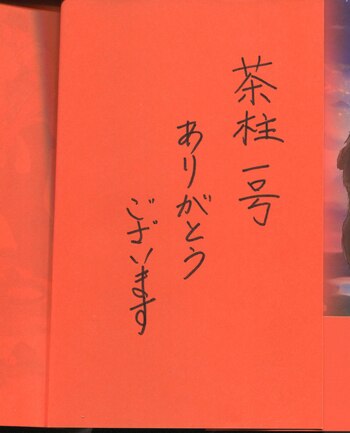 茶柱一号
ありがとう
ございます